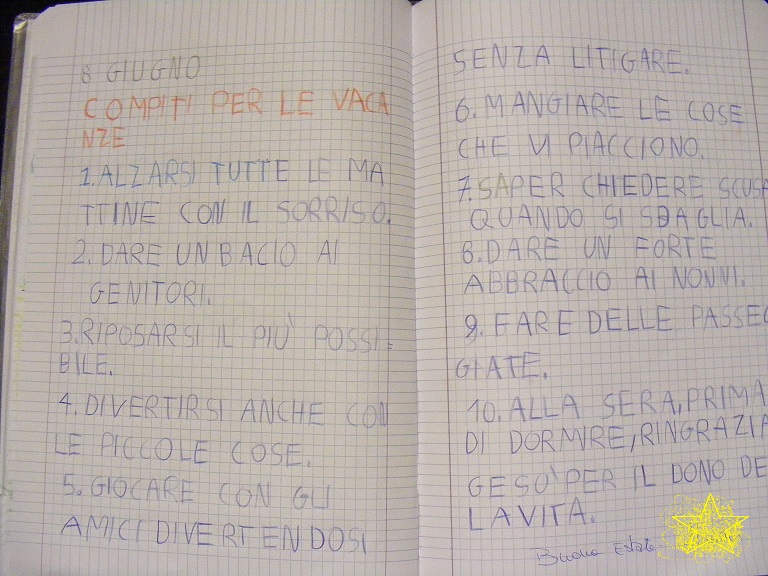 8 GIUGNO
COMPITI PER LE VACA
NZE
1.ALZARSI TUTTE LE MA
TTINE CON IL SORRISO.
2. DARE UN BACIO AI
GENITORI.
3.RIPOSARSI IL PIU' POSSI=
BILE.
4.DIVERTIRSI ANCHE CON
LE PICCOLE COSE.
5.GIOCARE CON GLI
AMICI DIVERTENDOSI
SENZA LITIGARE.
6.MANGIARE LE COSE
CHE VI PIACCIONO.
7.SAPER CHIEDERE SCUSA
QUANDO SI SBAGLIA.
8.DARE UN FORTE
ABBRACCIO AI NONNI.
9. FARE DELLE PASSEG
GIATE.
10.ALLA SERA,PRIMA
DI DORMIRE,RINGRAZIA
GESU' PER IL DONO DE
LA VITA.
Buona Estate